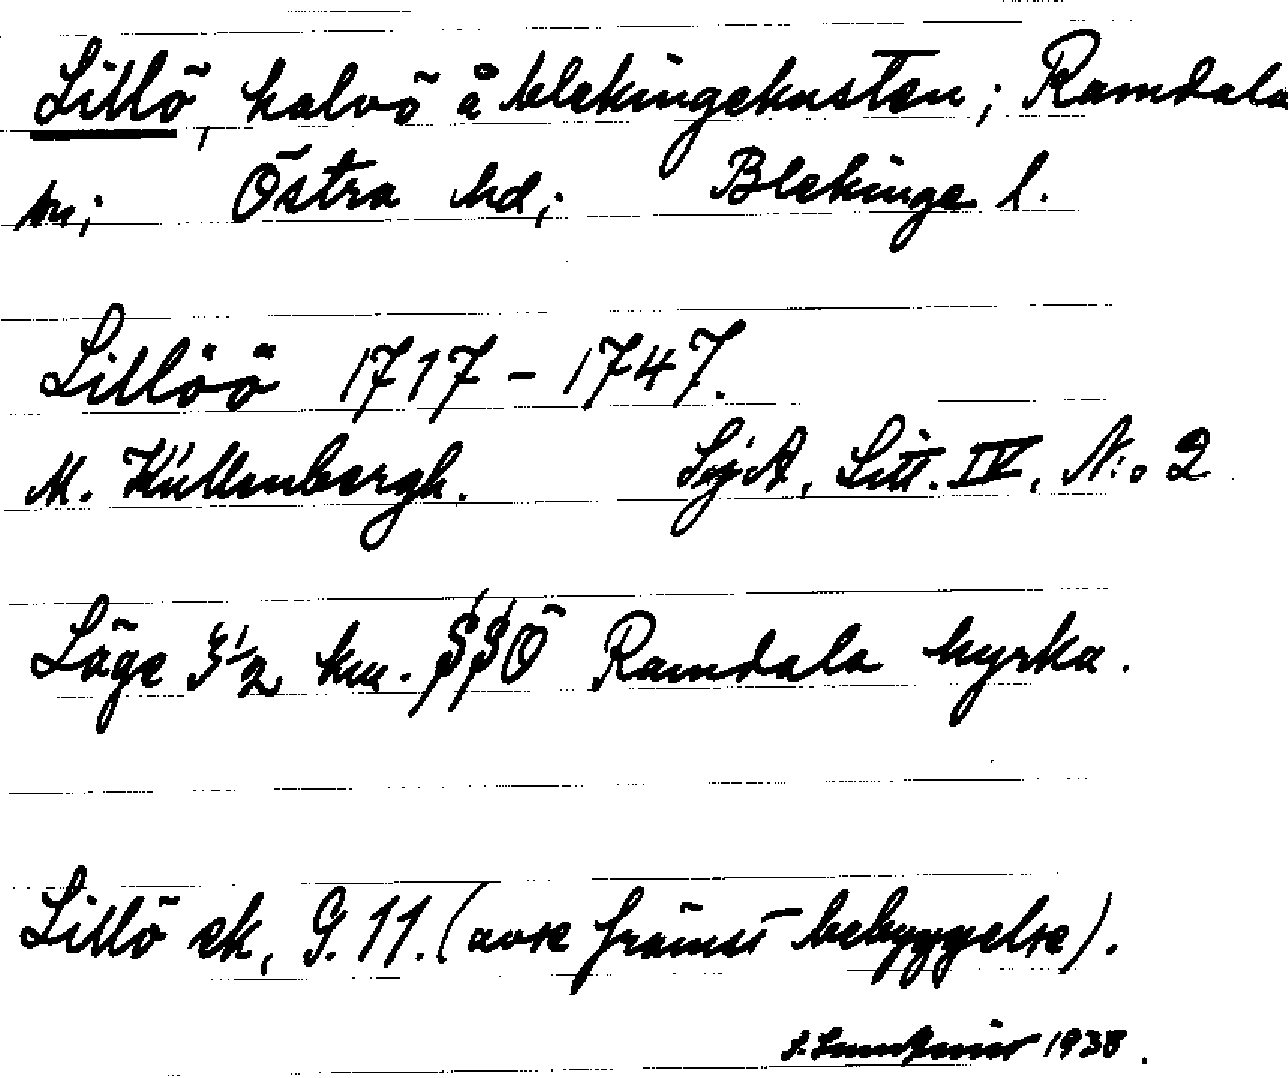 Lillö, halvö å blekingekusten; Ramdala
sn; Östra hd; Blekinge l.
Lillöö 1717 - 1747.
M. Küllenbergh. SjA, Litt. IV, N:o 2
Läge 3½ km. SSÖ Ramdala kyrka.
Lillö ek, G. 11. (avse främst bebyggelse).
1938.